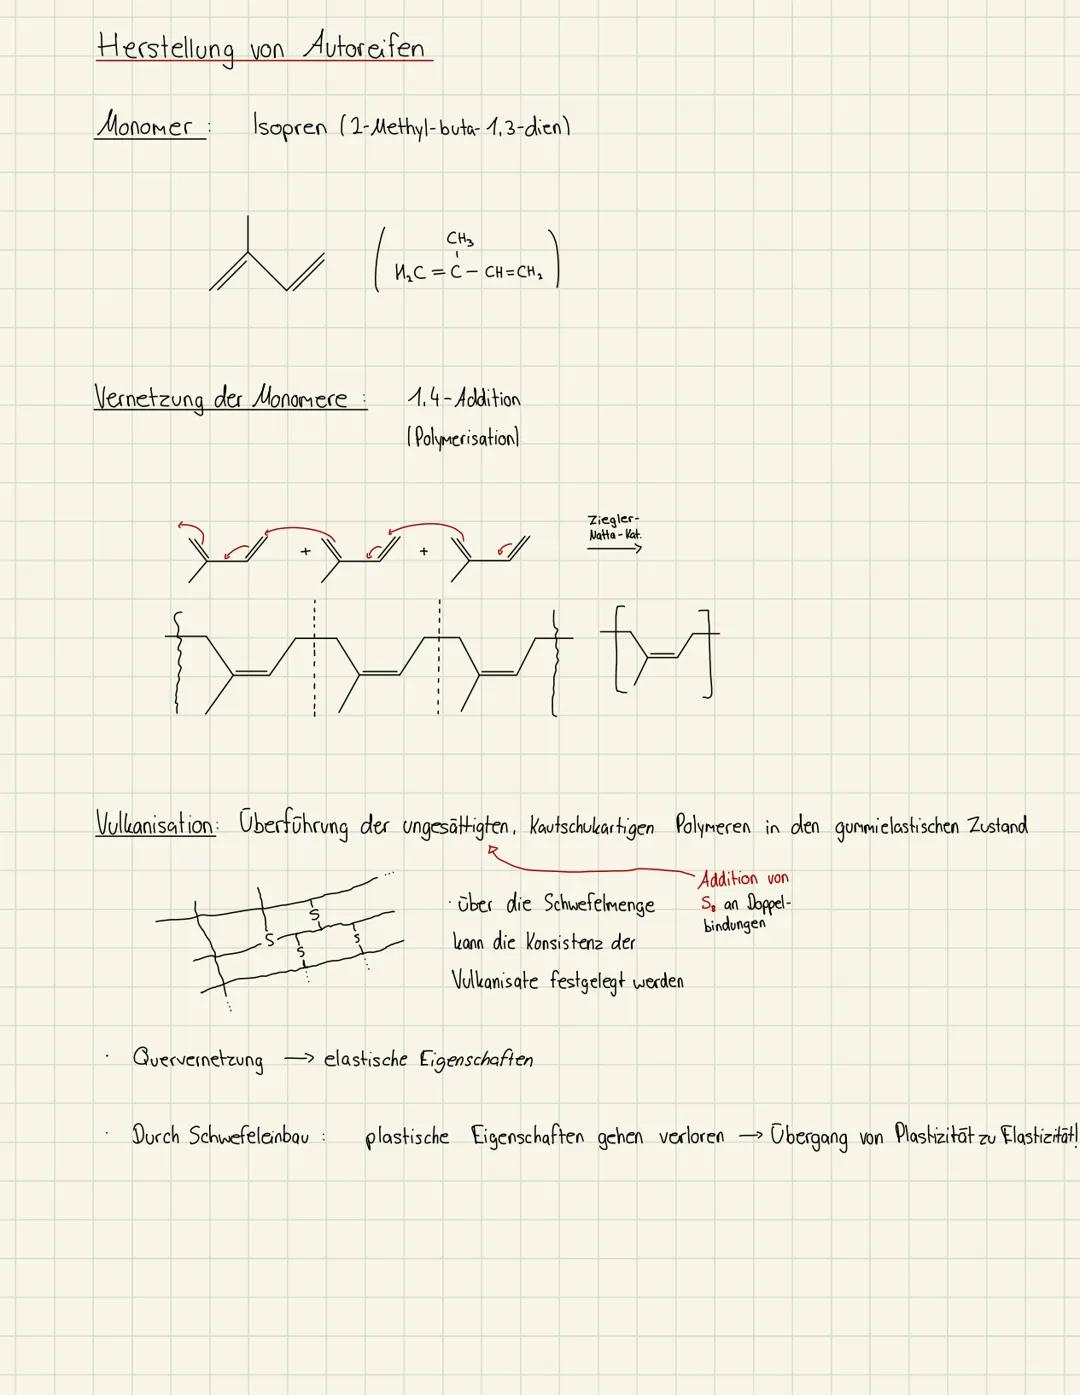 Herstellung von Autoreifen
Monomer : Isopren (2-Methyl-buta-1,3-dien)
CH₃
H₂C = C - CH=CH₂
Vernetzung der Monomere : 1,4-Addition
(Polymerisation)
Ziegler-
Natta-Kat.
+ +
Vulkanisation: Überführung der ungesättigten, kautschukartigen Polymeren in den gummielastischen Zustand
Addition von
S₈ an Doppel-
bindungen
· über die Schwefelmenge
kann die Konsistenz der
Vulkanisate festgelegt werden
S
S
S
S
· Quervernetzung → elastische Eigenschaften
· Durch Schwefeleinbau : plastische Eigenschaften gehen verloren → Übergang von Plastizität zu Elastizität!